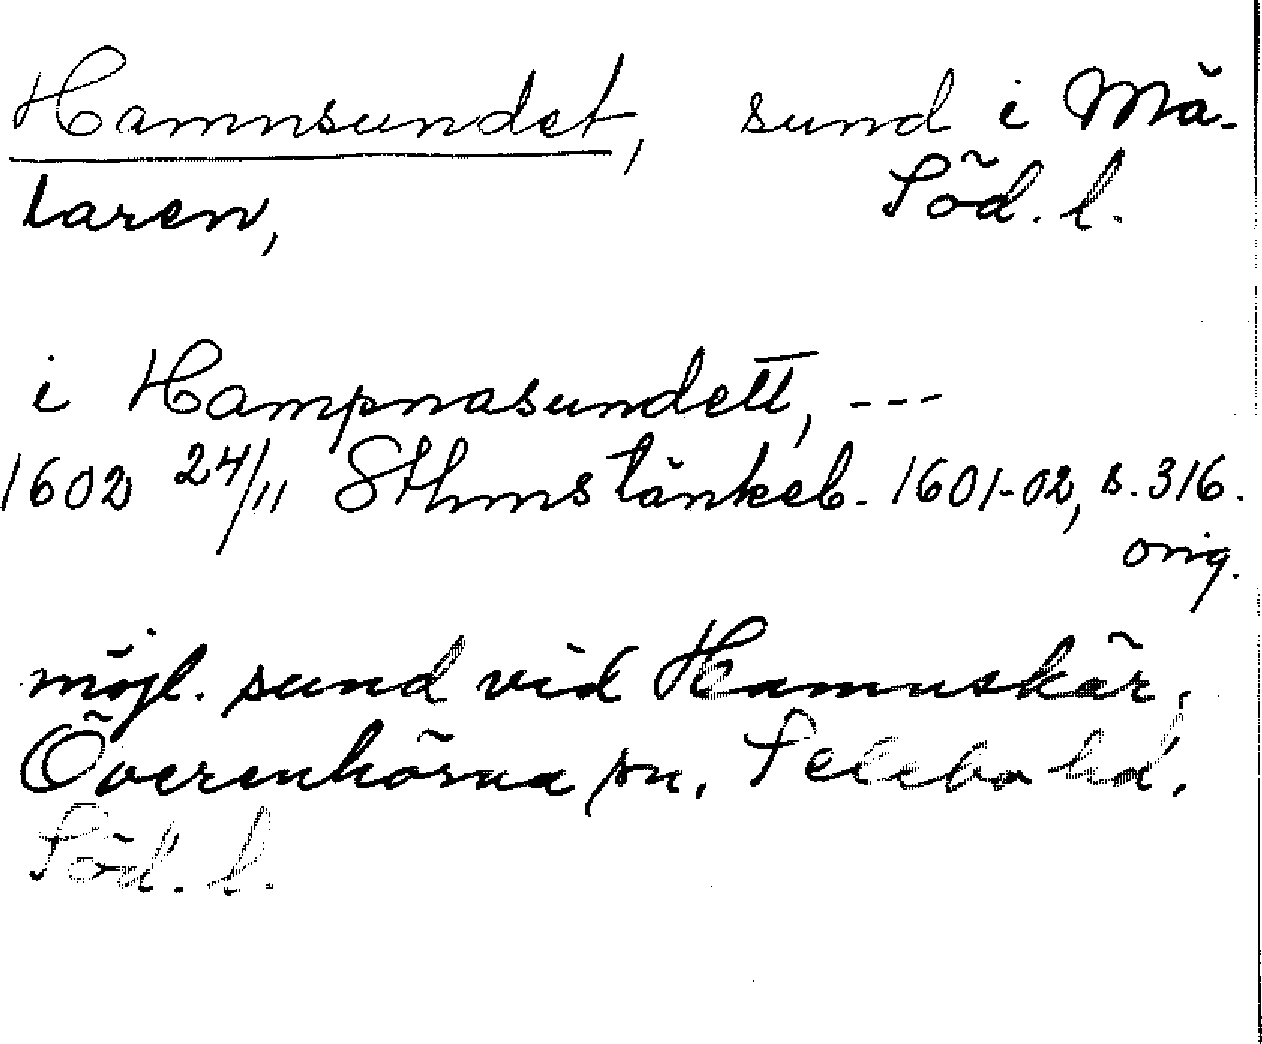 Hamnsundet, sund i Mä-
laren, Söd. l.
i Hampnasundett, ---
1602 24/11 Sthms tänkeb. 1601-02, s. 316.
orig.
möjl. sund vid Hamnskär,
Överenhörna sn. Selebo hd.
Söd. l.